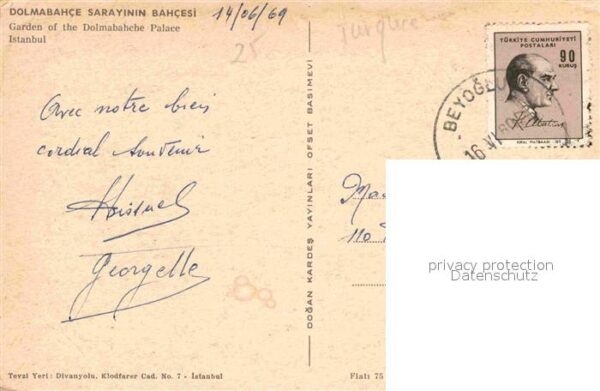 DOLMABAHÇE SARAYININ BAHÇESİ
Garden of the Dolmabahche Palace
Istanbul
14/06/69
25
Turquie
Avec notre bien
cordial souvenir
Georgette
DOĞAN KARDEŞ YAYINLARI OFSET BASIMEVİ
TÜRKİYE CUMHURİYETİ
POSTALARI
90
KURUŞ
K. Atatürk
BEYOĞLU
16 VI
110
privacy protection
Datenschutz
Tevzi Yeri: Divanyolu, Klodfarer Cad. No. 7 - İstanbul
Fiatı: 75